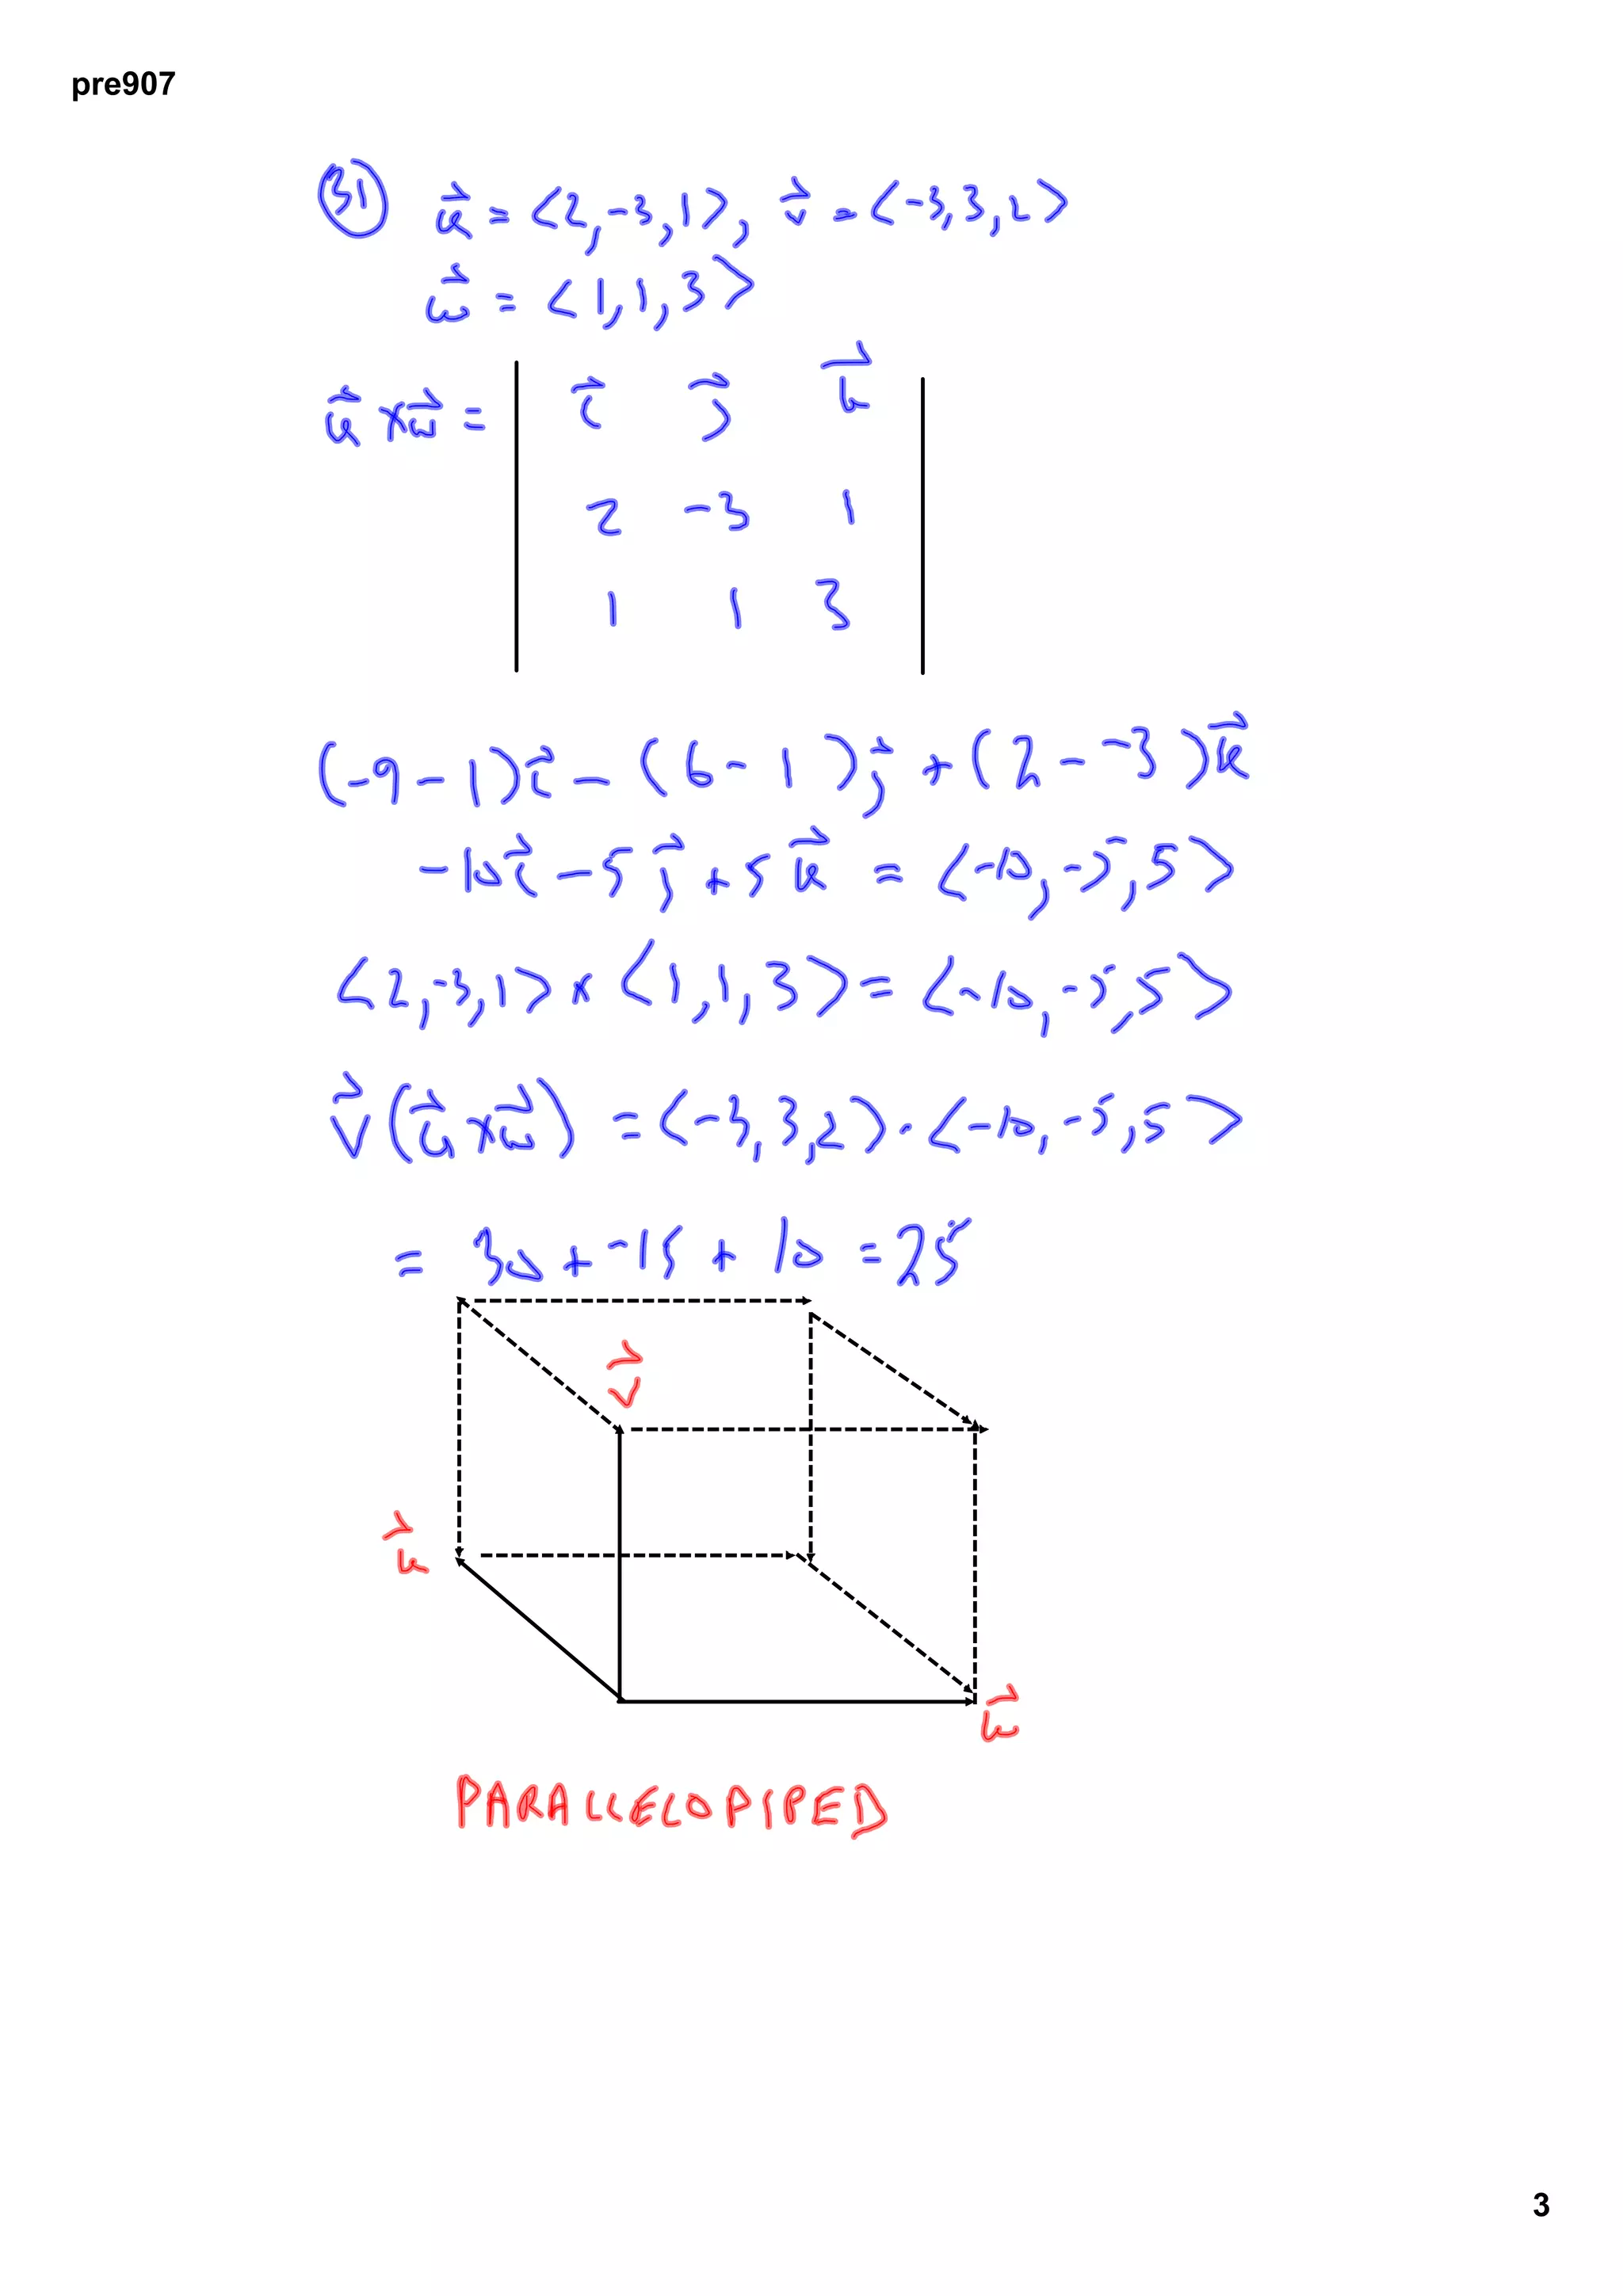 pre907
31 u⃗ = <2, -3, 1>, v⃗ = <-3, 3, 2>
w⃗ = <1, 1, 3>
u⃗ × w⃗ = | i⃗ j⃗ k⃗ |
2 -3 1
1 1 3
(-9 - 1)i⃗ - (6 - 1)j⃗ + (2 - -3)k⃗
-10i⃗ - 5j⃗ + 5k⃗ = <-10, -5, 5>
<2, -3, 1> × <1, 1, 3> = <-10, -5, 5>
v⃗(u⃗×w⃗) = <-3, 3, 2> · <-10, -5, 5>
= 30 + -15 + 10 = 25
v⃗
u⃗
w⃗
PARALLELOPIPED
3